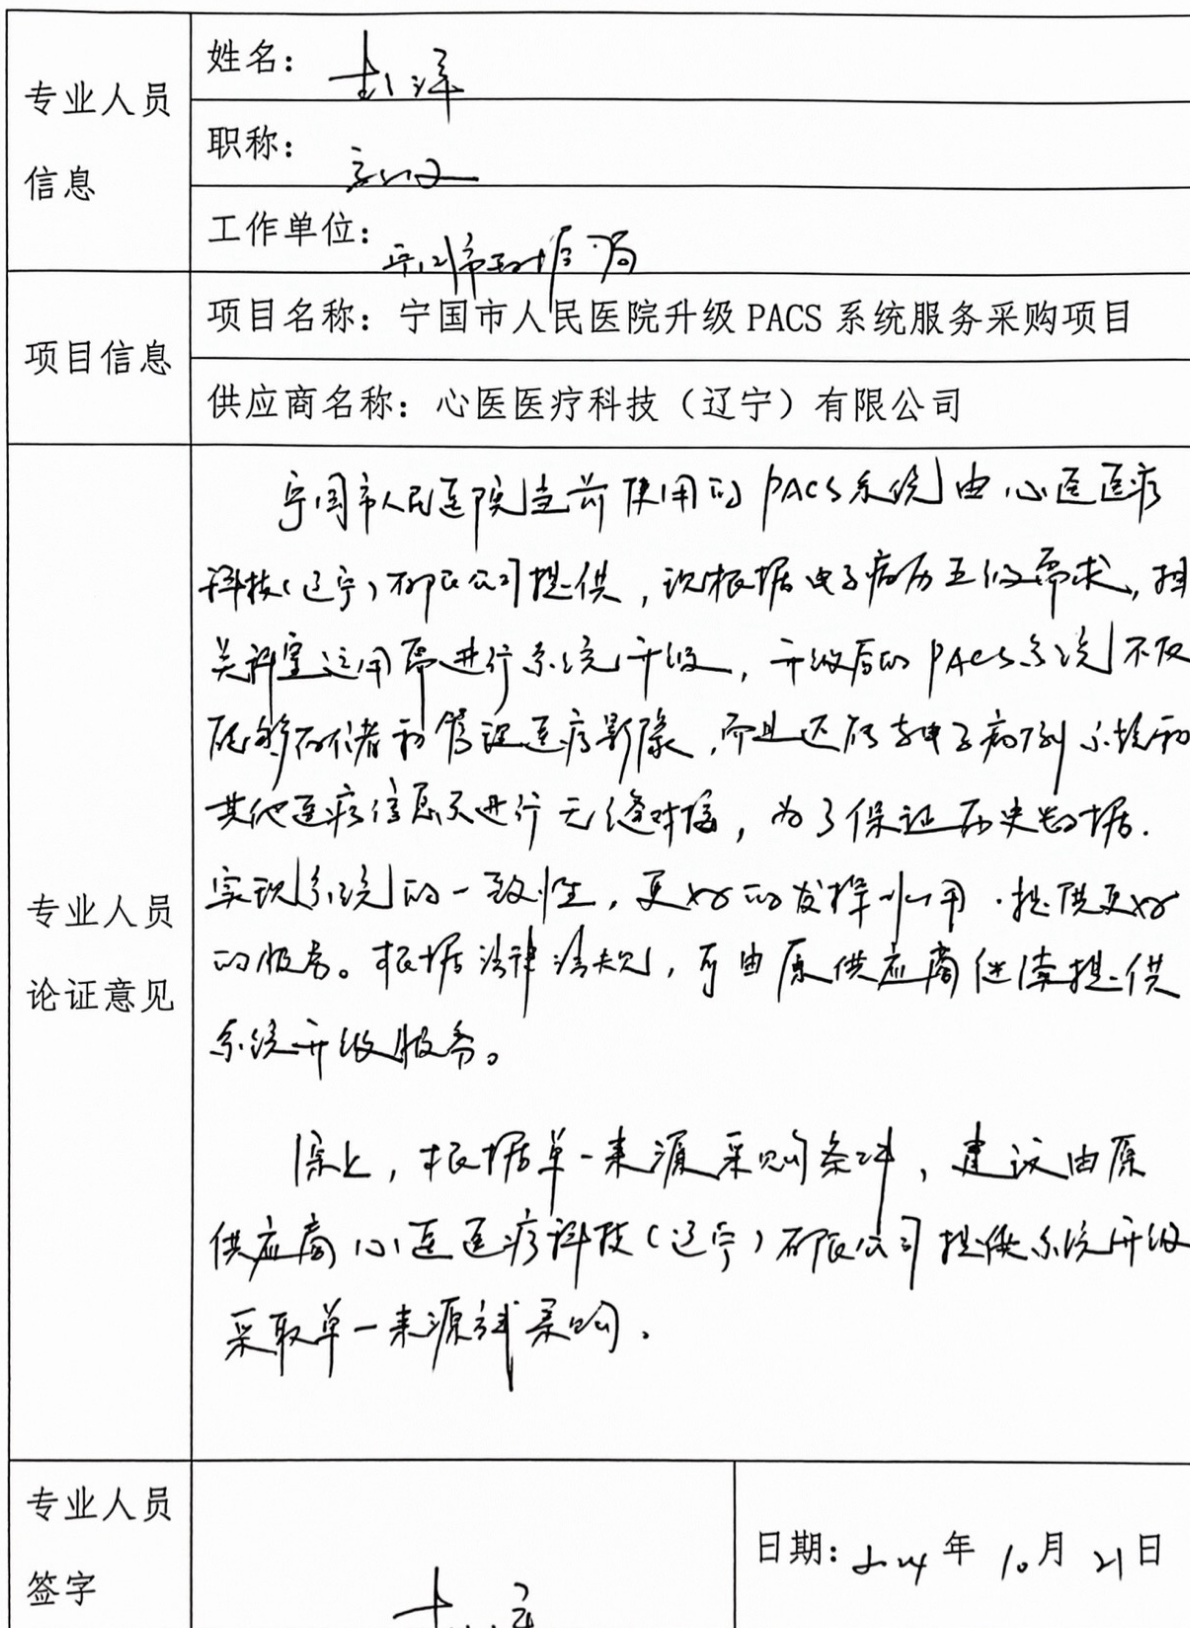 专业人员
信息
姓名：
职称：
工作单位：宁国市数据局
项目信息
项目名称：宁国市人民医院升级 PACS 系统服务采购项目
供应商名称：心医医疗科技（辽宁）有限公司
专业人员
论证意见
宁国市人民医院当前使用的PACS系统由心医医疗
科技（辽宁）有限公司提供，现根据电子病历五级需求，相
关科室运用需进行系统升级，升级后的PACS系统不仅
能够存储和管理医疗影像，而且还能与电子病例系统和
其他医疗信息系进行无缝对接，为了保证历史数据．
实现系统的一致性，更好的发挥作用．提供更好
的服务。根据法律法规，可由原供应商继续提供
系统升级服务。
综上，根据单一来源采购条件，建议由原
供应商心医医疗科技（辽宁）有限公司提供系统升级
采取单一来源方式采购．
专业人员
签字
日期：2024年 10月 21日